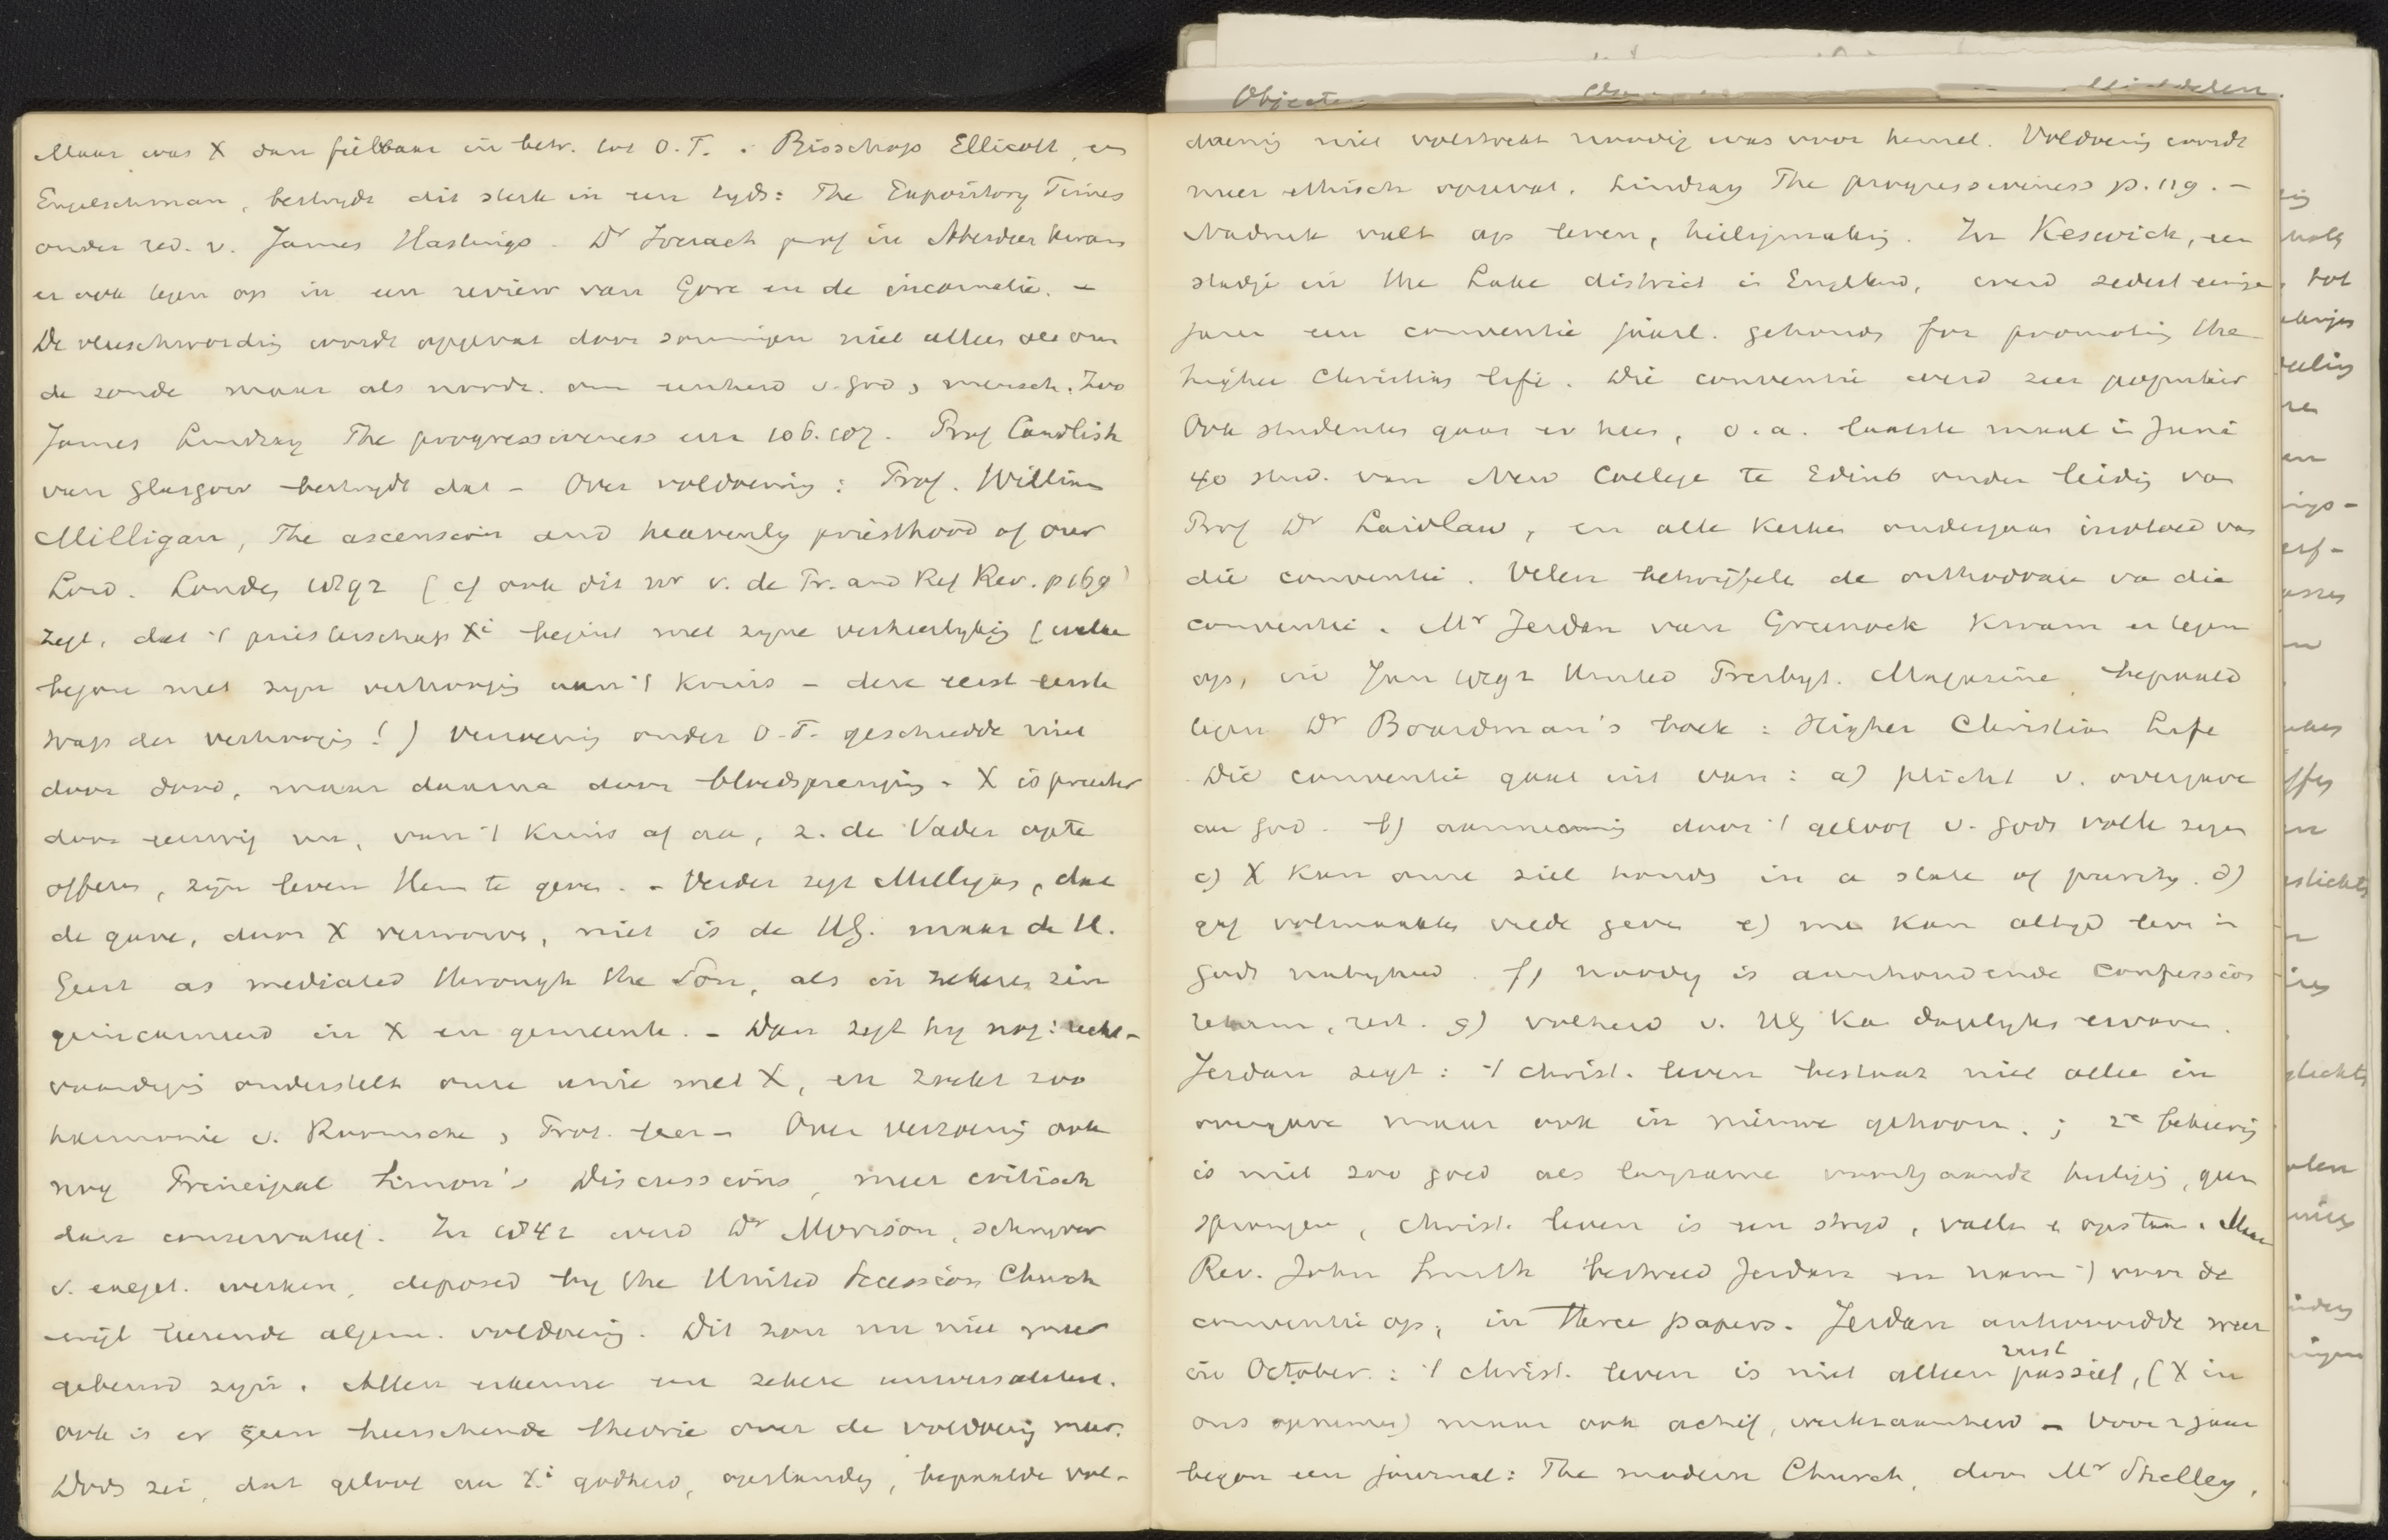 Maar was X dan feilbaar in betr. tot O.T. Bisschop Ellicott, en
Engelschman, bestrydt dit sterk in een tyds: The Expository Times
onder red. v. James Hastings. Dr Iverach prof in Aberdeen kwam
er ook tegen op in een review van Gore en de incarnatie. –
De vleeschwording wordt opgevat door sommigen niet alleen als om
de zonde maar als noodz. om eenheid v. God, mensch. Zoo
James Lindsay The progressiveness enz 106.107. Prof Candlish
van Glasgow bestrydt dat – Over voldoening: Prof. William
Milligan, The ascension and heavenly priesthood of our
Lord. London 1892 (cf ook dit nr v. de Pr. and Ref Rev. p169)
zegt, dat 't priesterschap Xi begint met zyne verheerlyking (welke
begon met zyn verhooging aan 't kruis – deze eerst eerste
trap der verhooging!) Verzoening onder O.T. geschiedde niet
door dood, maar daarna door bloedsprenging. X is priester
door eeuwig nu, van 't kruis af aan, z. de Vader opte
offeren, zijn leven Hem te geven. – Verder zegt Milligan, dat
de gave, door X verworven, niet is de HG. maar de H.
Geest as mediated through the Son, als in zekere zin
geincarneerd in X en gemeente. – Dan zegt hy nog: recht-
vaardiging onderstelt onze unie met X, en zoekt zoo
harmonie v. Roomsche, Prot. leer – Over verzoening ook
nog Principal Simon's Discussions, meer critisch
dan conservatief. In 1842 werd Dr Morison, schryver
v. exeget. werken, deposed by the United Secession Church
wijl leerende algem. voldoening. Dit zou nu niet meer
gebeurd zijn. Allen erkennen een zekere universaliteit.
Ook is er geen heerschende theorie over de voldoening meer.
Dods zei, dat geloof aan Xi godheid, opstanding, bepaalde vol-
doening niet volstrekt noodig was voor hemel. Voldoening wordt
meer ethisch opgevat. Lindsay The progressiveness p. 119. –
Nadruk valt op leven, heiligmaking. In Keswick, een
stadje in the Lake district in Engeland, werd sedert eenige
jaren een conventie jaarl. gehouden for promoting the
higher Christian life. Die conventie werd zeer populair
Ook studenten gaan er heen, o.a. laatste maal in Juni
40 stud. van New College te Edinb onder leiding van
Prof Dr Laidlaw, en alle kerken ondergaan invloed van
die conventie. Velen betwijfelen de orthodoxie van die
conventie. Mr Jerdan van Greenock kwam er tegen
op, in Jan 1892 United Presbyt. Magazine, bepaald
tegen Dr Boardman's boek: Higher Christian Life
Die conventie gaat uit van: a) plicht v. overgave
aan God. b) aanneming door 't geloof v. Gods volle zegen
c) X kan onze ziel houden in a state of purity. d)
zelf volmaakte vrede geven e) men kan altyd leven in
Gods nabyheid. f) noodig is aanhoudende confession
return, rest. g) volheid v. HG kan dagelyks ervaren.
Jerdan zegt: 't christ. leven bestaat niet alleen in
overgave maar ook in nieuwe gehoorz.; 2e bekeering
is niet zoo goed als langzame voortgaande heiliging, geen
sprongen, christ. leven is een stryd, vallen en opstaan. Maar
Rev. John Smith bestreed Jerdan en nam 't voor de
conventie op, in three papers. Jerdan antwoordde weer
in October: 't christ. leven is niet alleen rust passief, (X in
ons opnemen) maar ook actief, werkzaamheid – Voor 2 jaar
begon een journal: The modern Church, door Mr Shelley,